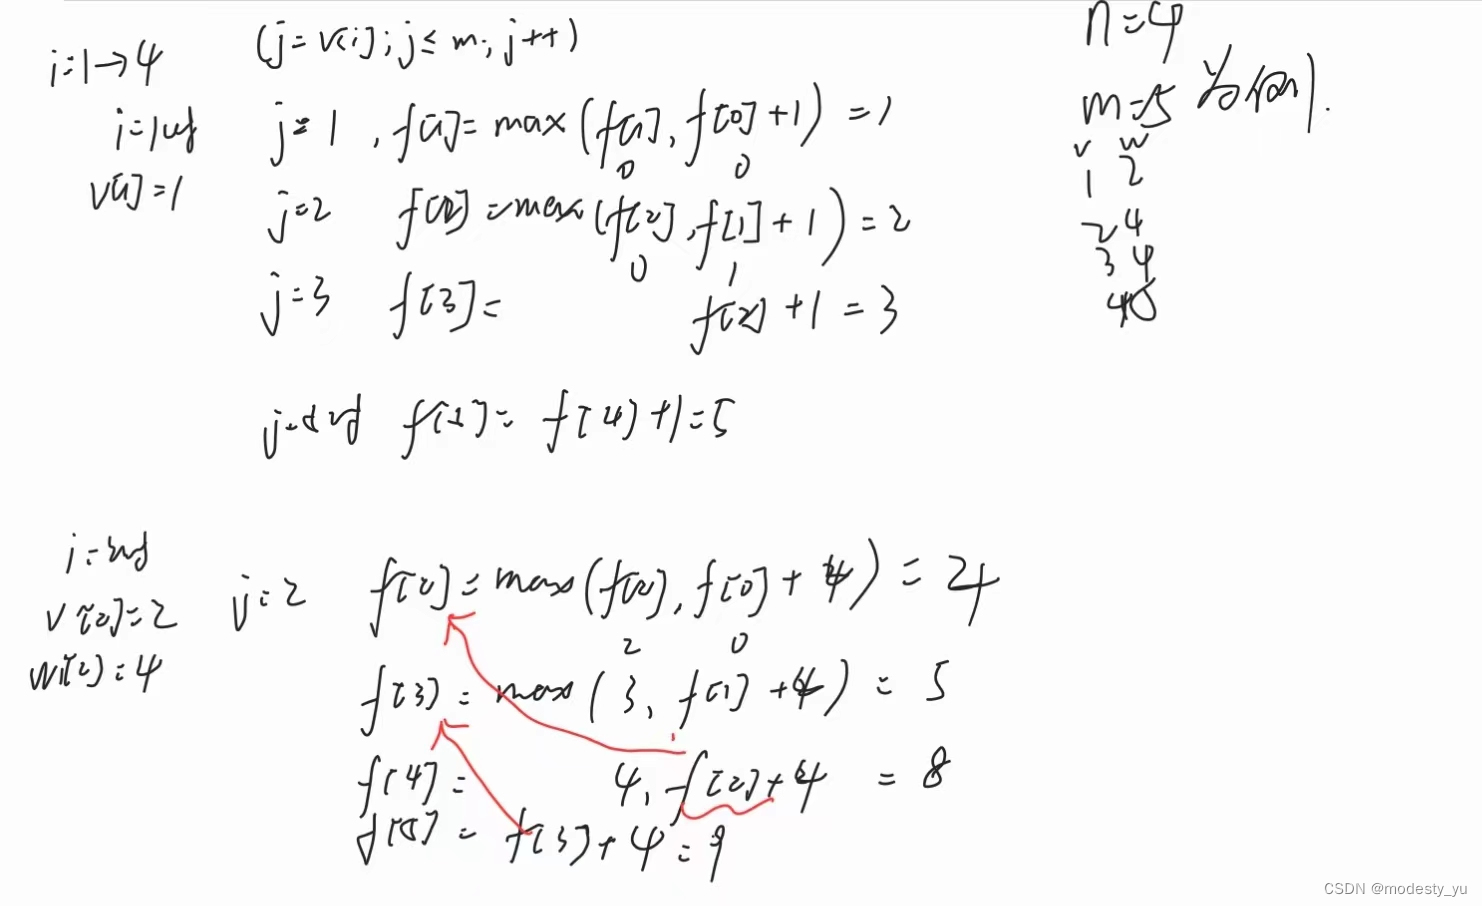 i=1→4 (j=v[i];j≤m;j++)
n=4
m=5 为例.
i=1时 j=1, f[1]=max(f[1],f[0]+1)=1
0 0
v[1]=1
j=2 f[2]=max(f[2],f[1]+1)=2
0 1
j=3 f[3]= f[2]+1=3
v w
1 2
2 4
3 4
4 5
f[5]= f[4]+1=5
i=2时
v[2]=2
w[2]=4
j=2 f[2]=max(f[2],f[0]+4)=4
2 0
f[3]=max(3,f[1]+4)=5
1
f[4]= 4,f[2]+4 =8
f[5]= f[3]+4=9
CSDN @modesty_yu